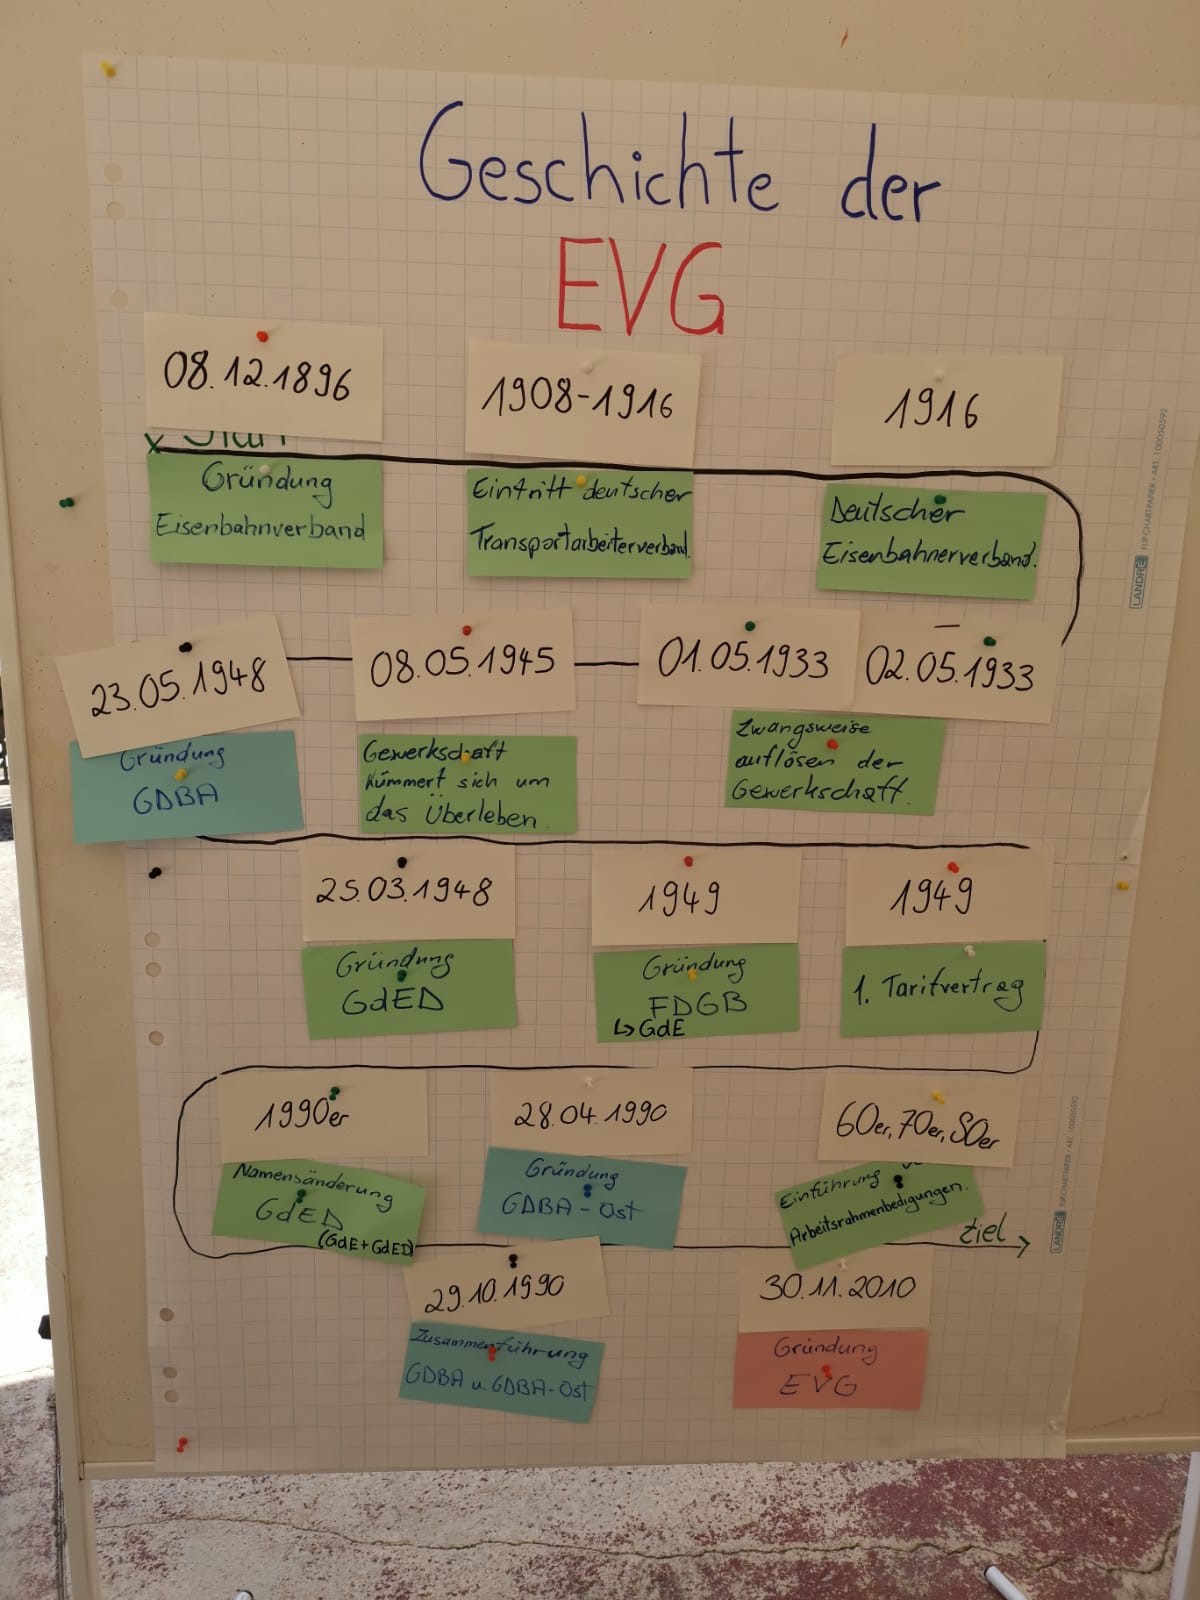 Geschichte der
EVG
08.12.1896
1908-1916
1916
x Start
Gründung
Eisenbahnverband
Eintritt deutscher
Transportarbeiterverband.
Deutscher
Eisenbahnerverband.
23.05.1948
08.05.1945
01.05.1933
02.05.1933
Gründung
GDBA
Gewerkschaft
kümmert sich um
das Überleben.
Zwangsweise
auflösen der
Gewerkschaft.
25.03.1948
1949
1949
Gründung
GdED
Gründung
FDGB
↳ GdE
1. Tarifvertrag
1990er
28.04.1990
60er, 70er, 80er
Namensänderung
GdED
(GdE+GdED)
Gründung
GDBA-Ost
Einführung
Arbeitsrahmenbedigungen.
Ziel
29.10.1990
30.11.2010
Zusammenführung
GDBA u. GDBA-Ost
Gründung
EVG
LANDRÉ FLIPCHARTPAPIER • ART. 100050592
LANDRÉ FLIPCHARTPAPIER • ART. 100050592